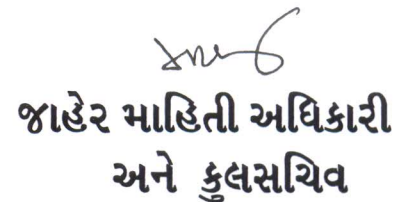 જાહેર માહિતી અધિકારી
અને કુલસચિવ